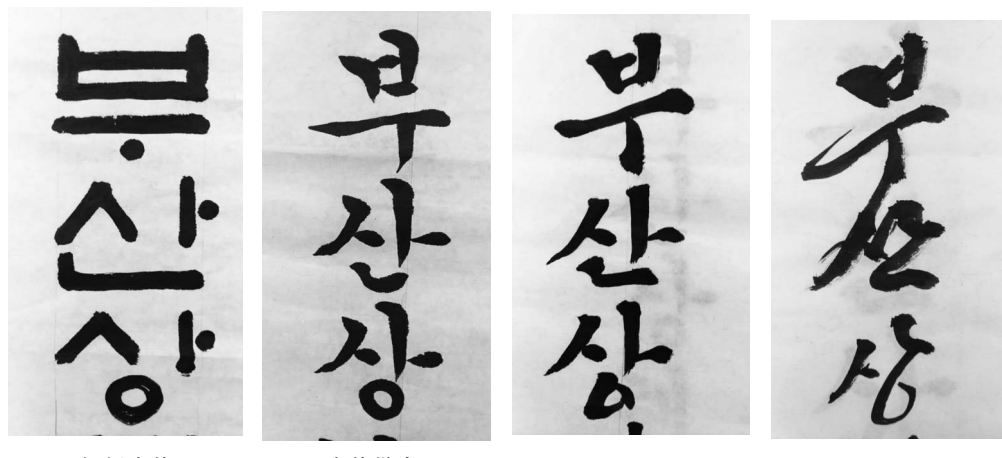 부산상
부산상
부산상
부산상